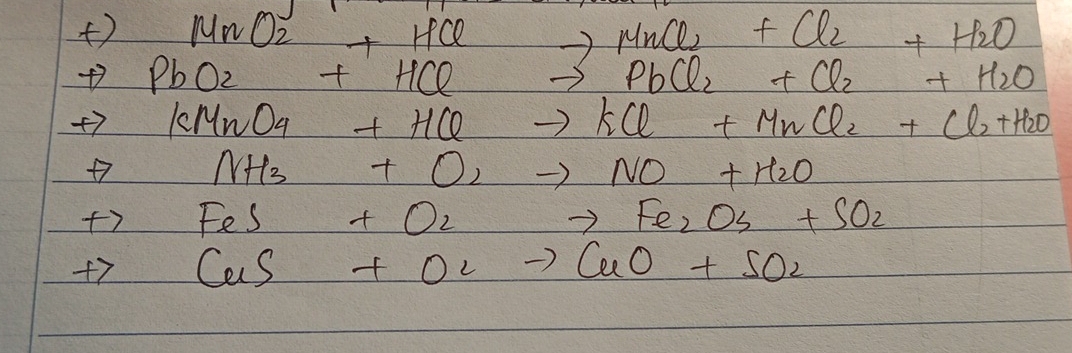 +) MnO2 + HCl → MnCl2 + Cl2 + H2O
+) PbO2 + HCl → PbCl2 + Cl2 + H2O
+) KMnO4 + HCl → KCl + MnCl2 + Cl2 + H2O
+) NH3 + O2 → NO + H2O
+) FeS + O2 → Fe2O3 + SO2
+) CuS + O2 → CuO + SO2